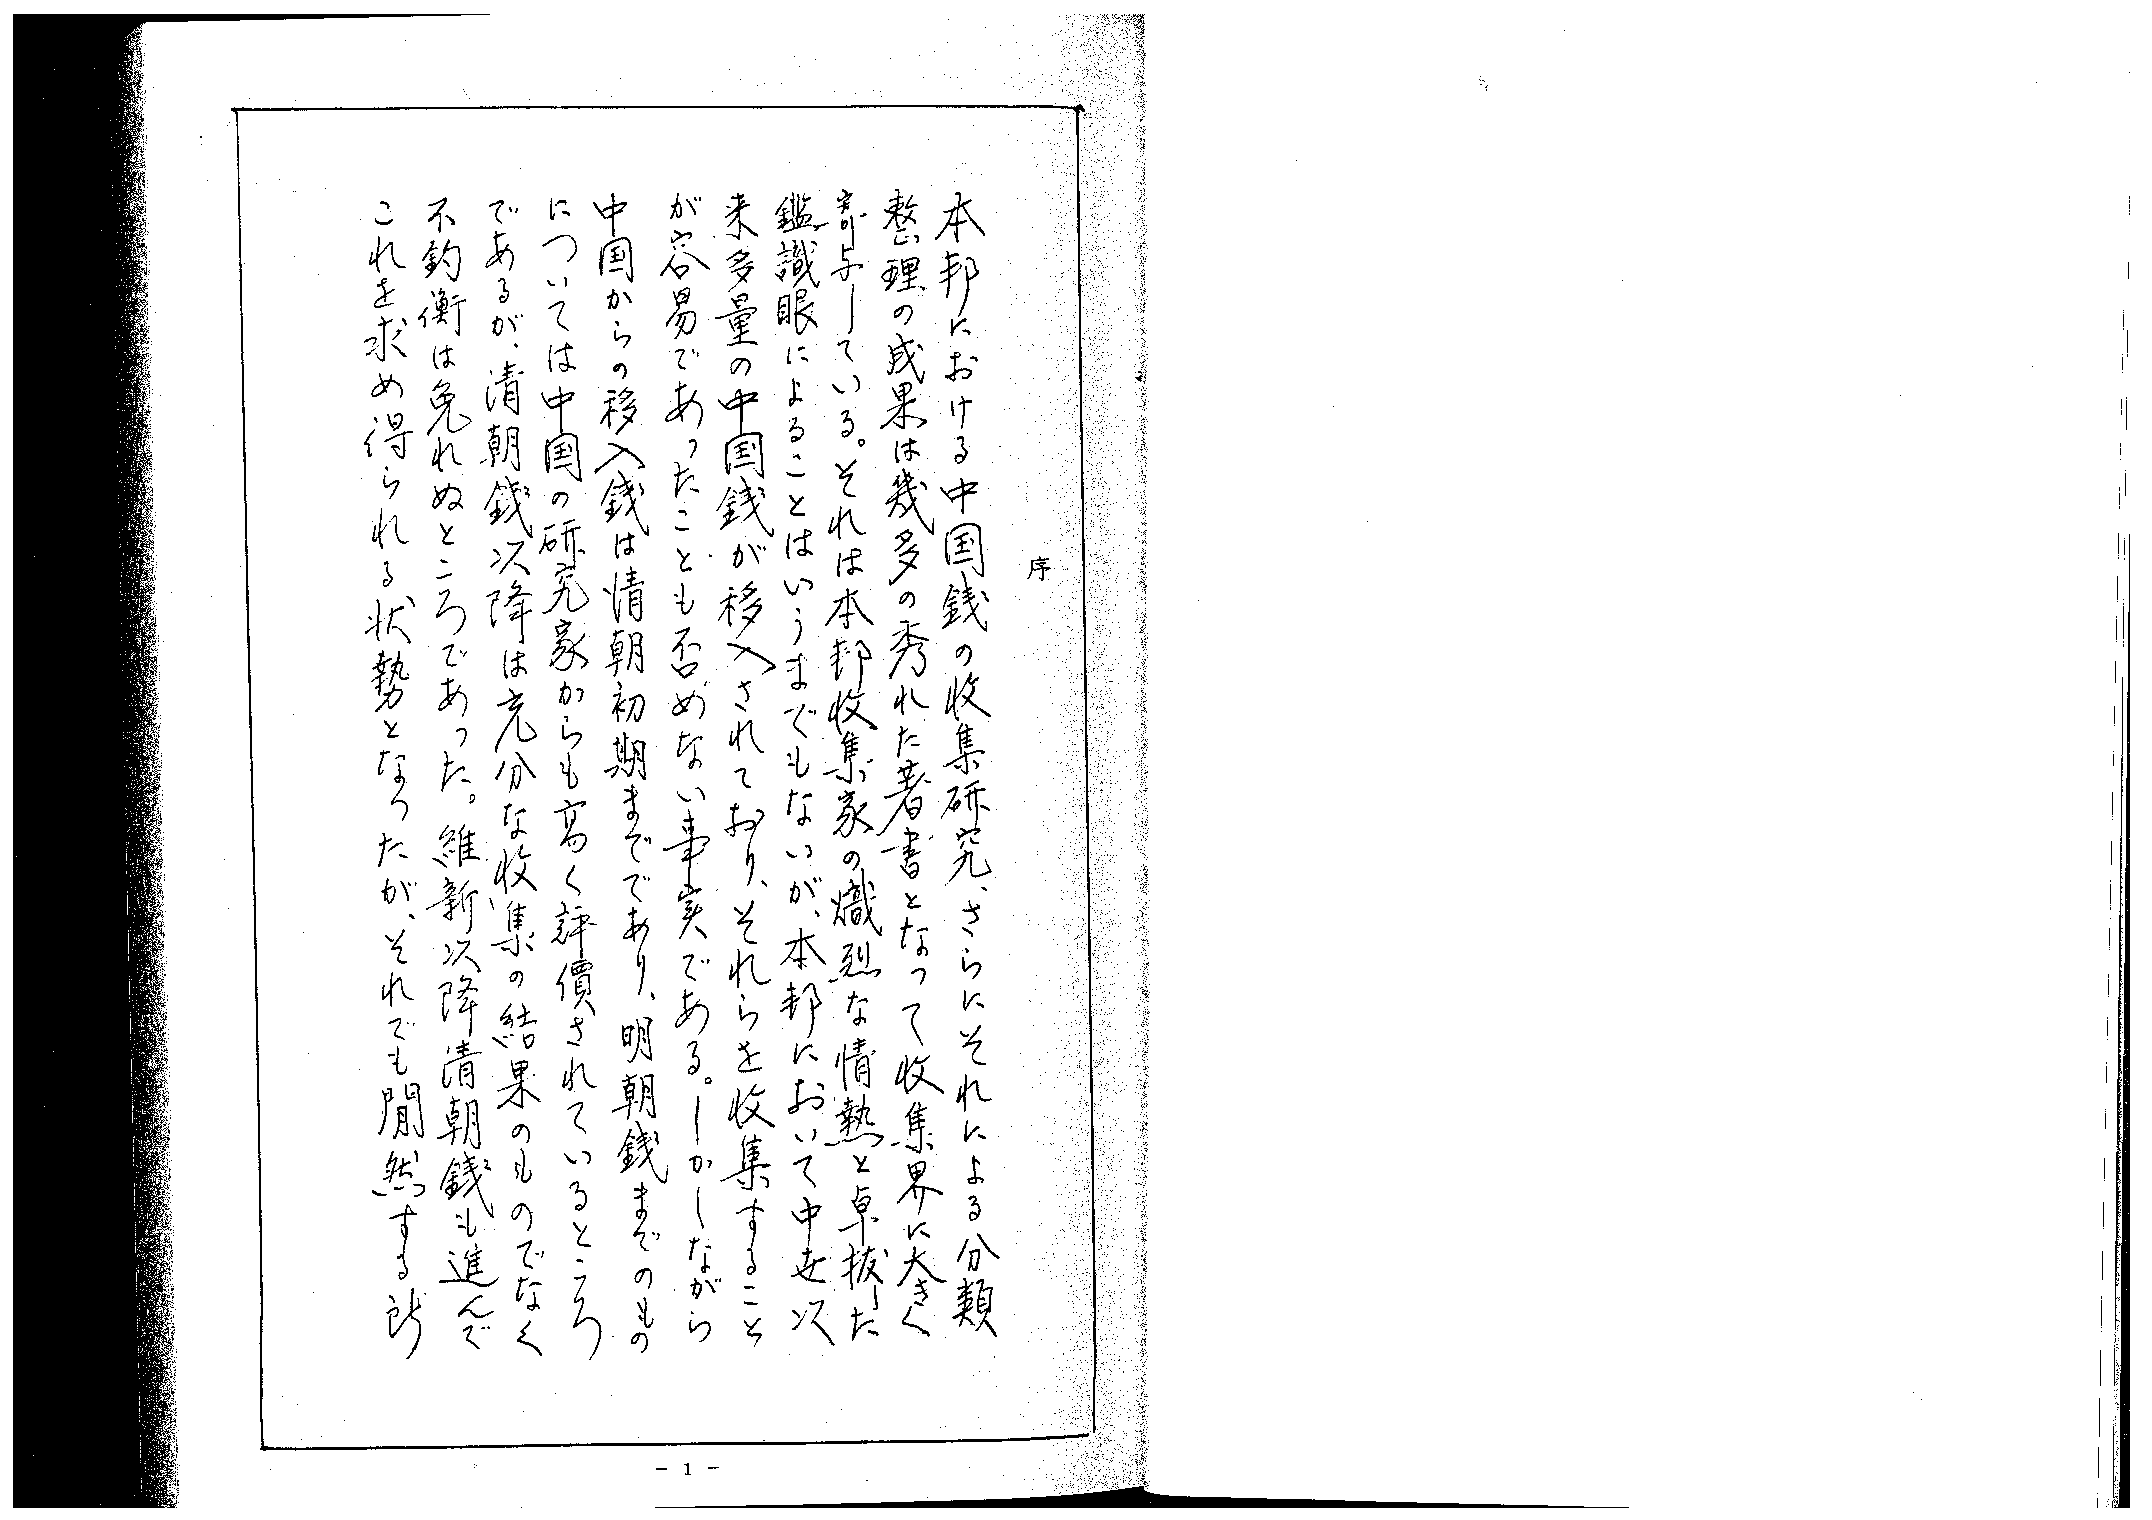 序
本邦における中国銭の收集研究、さらにそれによる分類
整理の成果は幾多の秀れた著書となって收集界に大きく
寄与している。それは本邦收集家の熾烈な情熱と卓抜した
鑑識眼によることはいうまでもないが、本邦において中世以
来多量の中国銭が移入されており、それらを收集すること
が容易であったことも否めない事実である。しかしながら
中国からの移入銭は清朝初期まででであり、明朝銭までのもの
については中国の研究家からも高く評價されているところ
であるが、清朝銭以降は充分な收集の結果のものでなく
不釣衡は免れぬところであった。維新以降清朝銭も進んで
これを求め得られる状勢となったが、それでも間然する所
- 1 -